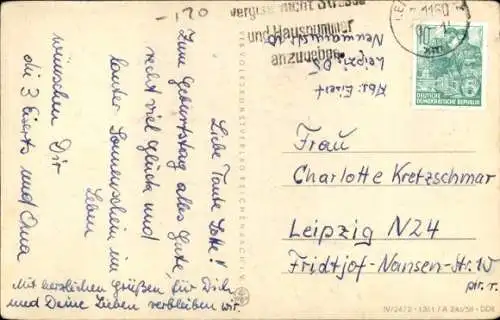 -,20
vergiß nicht Straße
und Hausnummer
anzugeben
1160
DEUTSCHE
DEMOKRATISCHE REPUBLIK
Abs: Eisert
Leipzig O5
Liebe Tante Lotte!
Zum Geburtstag alles Gute,
recht viel Glück und
lauter Sonnenschein im
Leben
wünschen Dir
die 3 Eiserts und Oma
Mit herzlichen Grüßen für Dich
und Deine Lieben verbleiben wir.
VEB VOLKSKUNSTVERLAG REICHENBACH I. V.
Frau
Charlotte Kretzschmar
Leipzig N24
Fridtjof-Nansen-Str. 10
ptr. r.
IV/24/2 - 1361 / A 246/59 - DDR